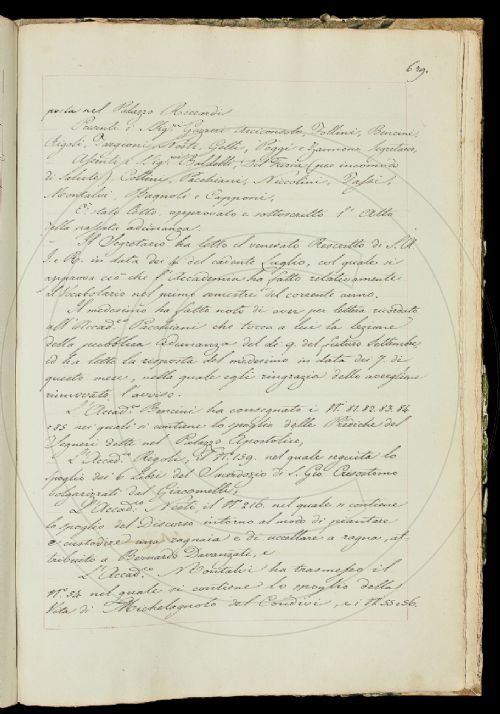 629.
posta nel Palazzo Riccardi
Presenti i Sigg.ri Arciconsolo, Follini, Bencini,
Rigoli, Targioni, Nesti, Gelli, Poggi e Zannoni Segretario,
Assenti i Sigg.ri Baldelli, Del Furia (per incomodo
di salute), Collini, Pacchiani, Niccolini, Tassi,
Montalvi, Bagnoli e Capponi,
È stato letto, approvato e sottoscritto l'Atto
della passata adunanza.
Il Segretario ha letto il venerato Rescritto di S. A.
I. e R. in data dei 4. del cadente Luglio, col quale si
approva ciò che l'Accademia ha fatto relativamente
al Vocabolario nel primo semestre del corrente anno.
Il medesimo ha fatto noto di aver per lettera ricordato
all'Accad.co Pacchiani che tocca a lui la lezione
della pubblica Adunanza del dì 9. del futuro Settembre
ed ha letta la risposta del medesimo in data dei 7. di
questo mese, nella quale egli ringrazia della
l'avviso.
L'Accad.co Bencini ha consegnato i N.i 81. 82. 83. 84
e 85 nei quali si contiene lo spoglio delle Prediche del
Segneri dette nel Palazzo Apostolico,
L'Accad.co Rigoli, il N.o 159. nel quale seguita lo
spoglio dei 6 Libri del Sacerdozio di S. Gio. Crisostomo
volgarizzati dal Giacomelli,
L'Accad.co Nesti, il N.o 216. nel quale si contiene
lo spoglio del Discorso intorno al modo di piantare
e custodire una ragnaia e di uccellare a ragna, at-
tribuito a Bernardo Davanzati, e
L'Accad.co Montalvi ha trasmesso il
N.o 54 nel quale si contiene lo spoglio della
Vita di Michelagnolo del Condivi, e i N.i 55 e 56.